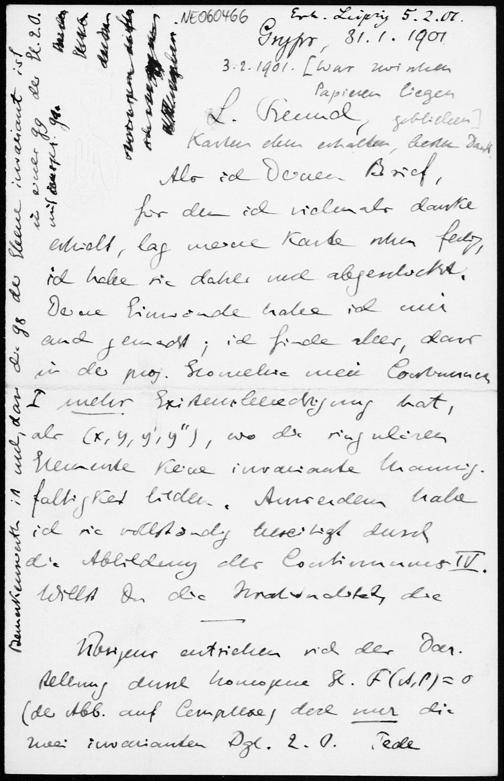 NE060466
Erh. Leipzig 5.2.01.
Gryps, 31.1.1901
3.2.1901. [War zwischen
Papieren liegen
L. Freund, geblieben]
Karten eben erhalten, besten Dank
Als ich Deinen Brief,
für den ich vielmals danke
erhielt, lag meine Karte schon fertig,
ich habe sie daher noch abgeschickt.
Deine Einwände habe ich mir
auch gemacht; ich finde aber, dass
in der proj. Geometrie mein Continuum
I mehr Existenzberechtigung hat,
als (x, y, y', y''), wo die singulären
Elemente keine invariante Mannig-
faltigkeit bilden. Ausserdem habe
ich sie vollständig beseitigt durch
die Abbildung des Continuums IV.
Willst Du die Irrationalität, die
Übrigens entziehen sich der Dar-
stellung durch homogene Gl. F(A,P)=0
(der Abb. auf Complexe) doch nur die
zwei invarianten Dgl. 2. O. Jede
Bemerkenswerth ist noch, dass die gg der Ebene invariant ist
in einer gg der Gl. 2.O.